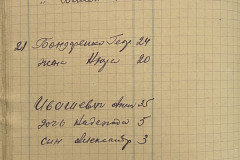 21 Бондаренко Геор 24
жена 20
Ивашевич Анна 35
дочь Надежда 5
син Александр 3